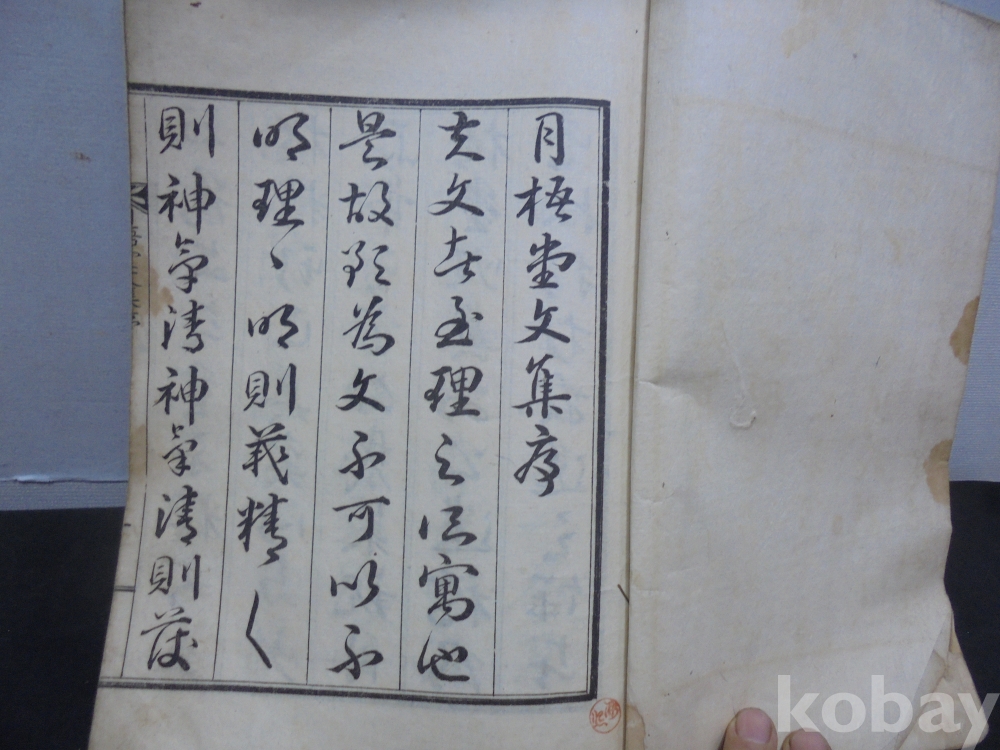 月梧堂文集序
夫文者至理之所寓也
是故欲為文不可以不
明理〻明則義精〱
則神氣清神氣清則
kobay